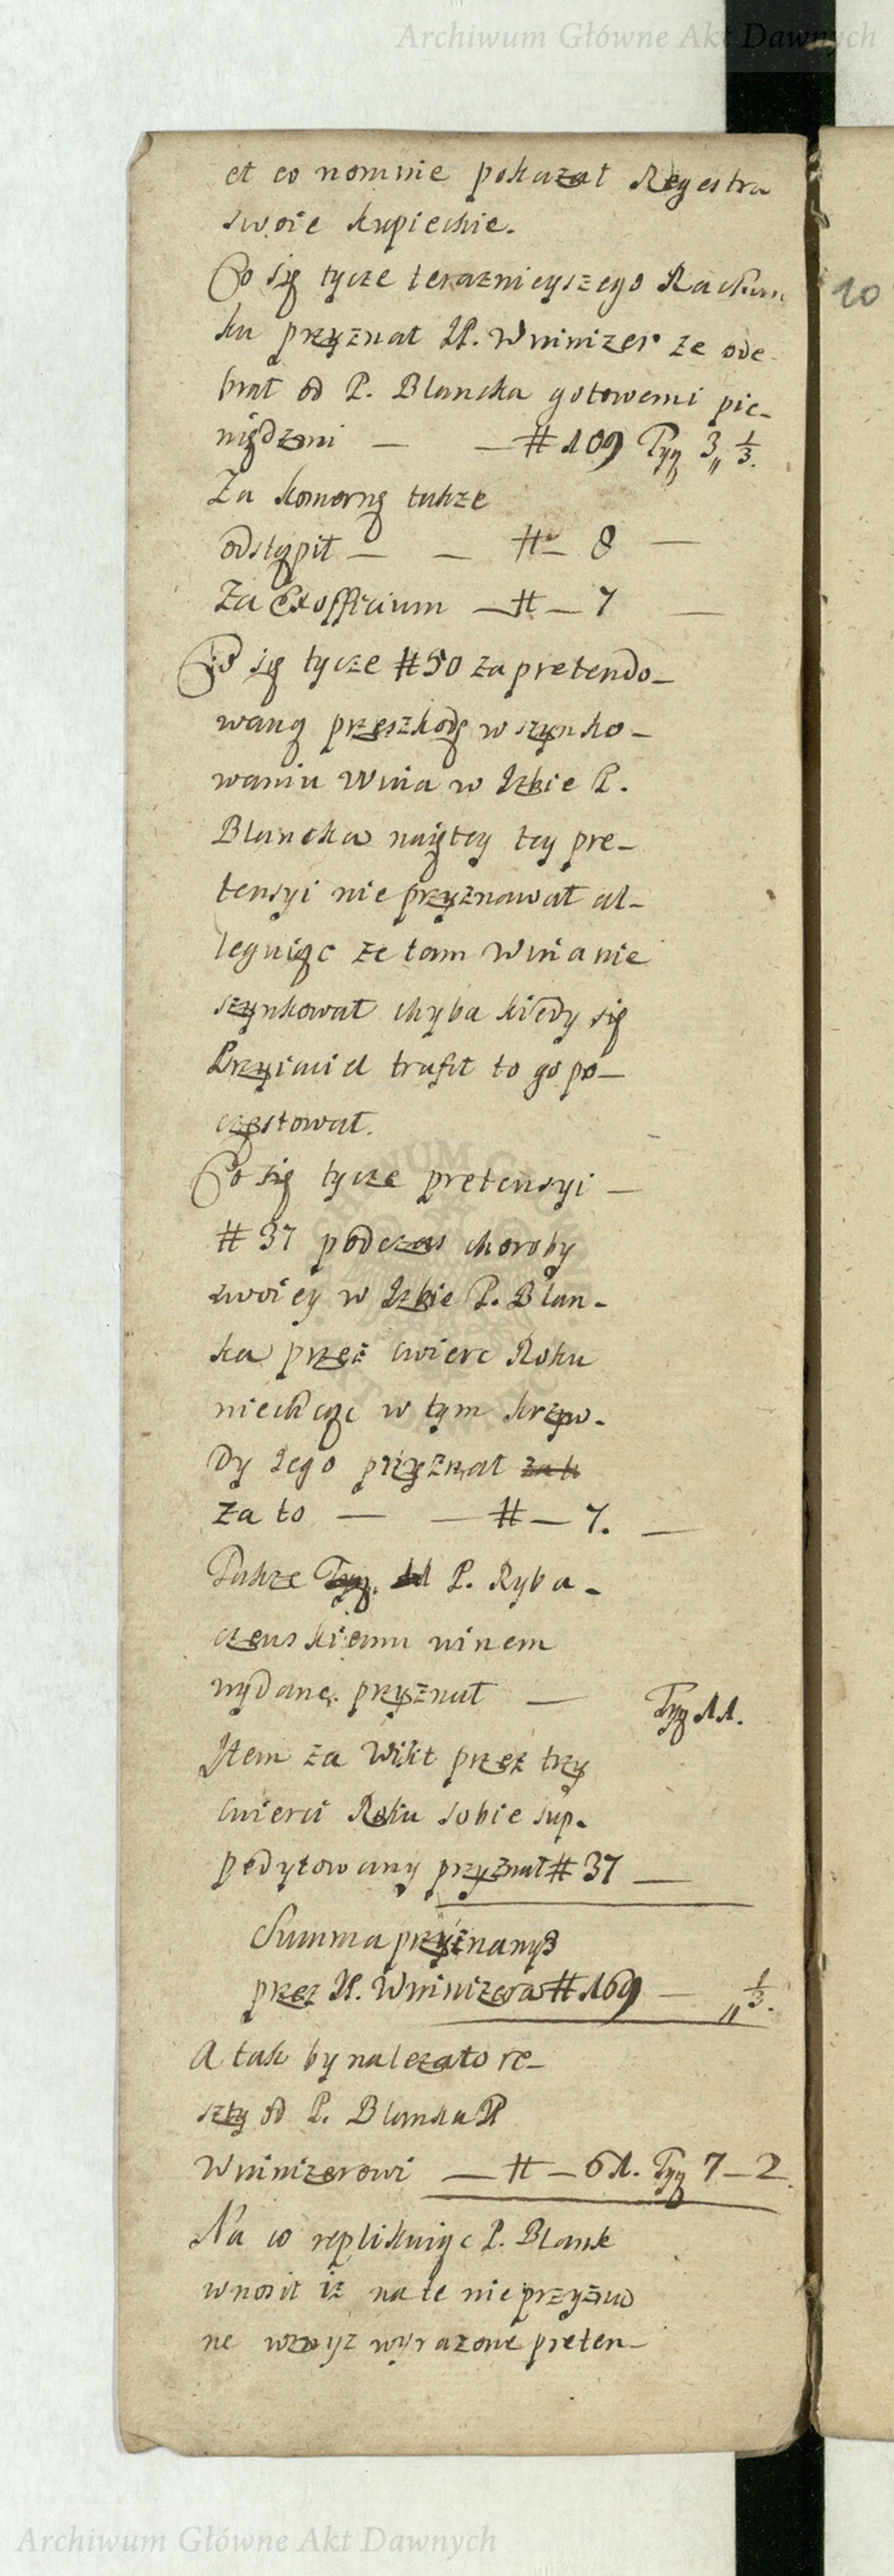 Archiwum Główne Akt Dawnych
et eo nomine pokazał Regestra
swoie kupieckie.
Co się tycze teraznieyszego Rachun
ku przyznał JP. Wninizer ze ode-
brał od P. Blancka gotowemi pie-
niędzmi — — # 109 Tyn 3 „ 1/3.
20
Za komornę także
odstąpił — — # — 8 —
Za Exofficium — # — 7 —
Co się tycze # 50 za pretendo-
waną przeszkodę w szynko-
waniu Wina w Izbie P.
Blancka naiętey tey pre-
tensyi nie przyznawał al-
leguiąc ze tam Wina nie
szynkował chyba kiedy się
Przyiaciel trafił to go po-
częstował.
Co się tycze pretensyi —
# 37 podczas choroby
swoiey w Izbie P. Blan-
ka przez cwierc Roku
niechcąc w tym krzyw-
dy Iego przyznał
za to — — # — 7. —
Także P. Ryba-
czewskiemu winem
wydane. przyznał — Tyn 11.
Item za Wikt przez trzy
cwierci Roku sobie sup-
pedytowany przyznał # 37 —
Summa przyznanych
przez JP. Wninizera # 169 — „ 1/3.
A tak by nalezało re-
szty od P. Blanka JP
Wninizerowi — # — 61. Tyn 7 — 2
Na co replikuiąc P. Blank
wnosił iz na te nieprzyzna
ne wzwyz wyrazone preten-
Archiwum Główne Akt Dawnych